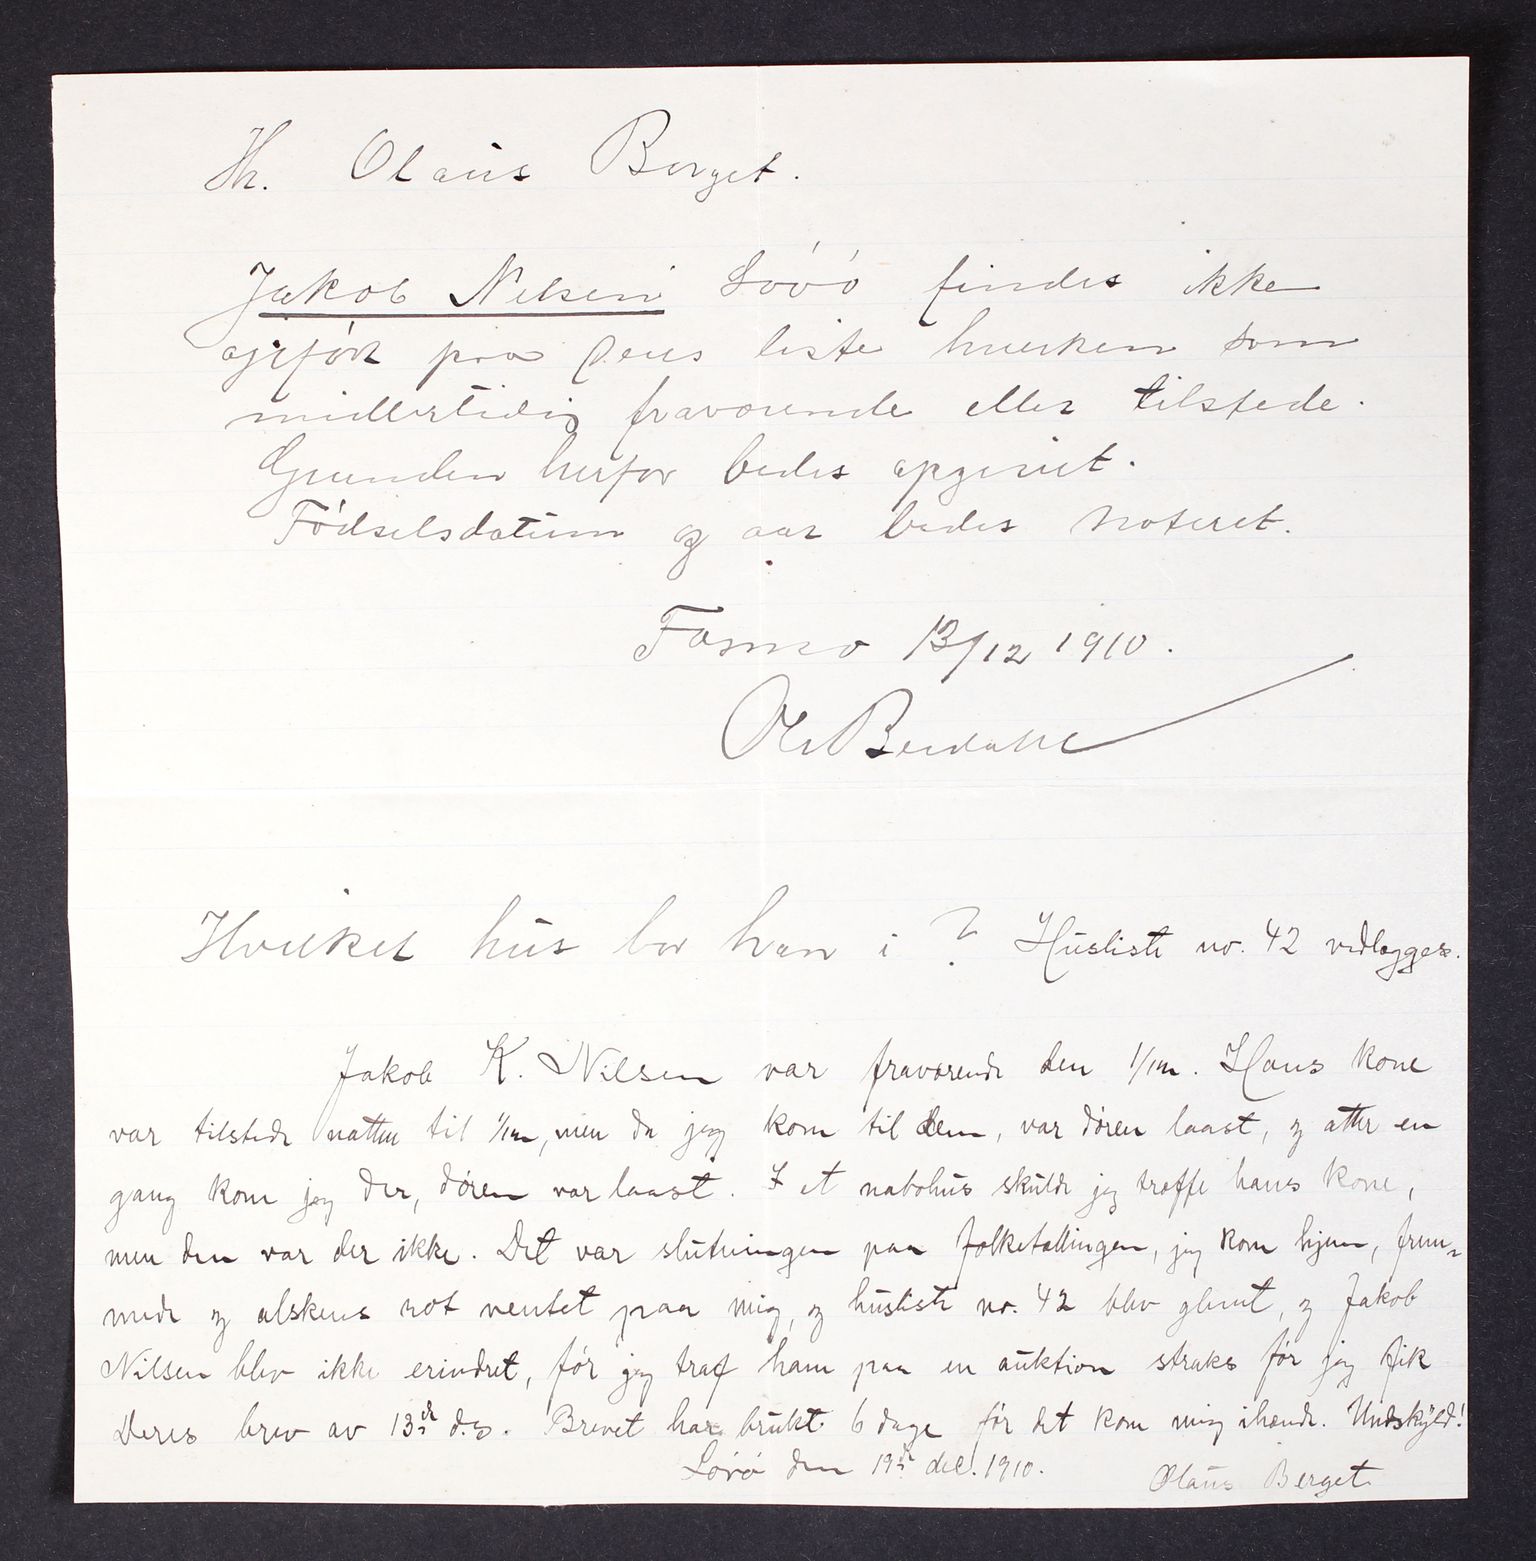 Hr. Olaus Berget.
Jakob Nilsen Lövö findes ikke
opført paa Deres liste hverken som
midlertidig fraværende eller tilstede.
Grunden herfor bedes opgivet.
Fødselsdatum og aar bedes noteret.
Fosnes 13/12 1910.
Ole Berdahl
Hvilket hus bor han i ? Husliste no. 42 vedlægges.
Jakob K. Nilsen var fraværende den 1/12. Hans kone
var tilstede natten til 1/12, men da jeg kom til dem, var døren laast, og atter en
gang kom jeg der, døren var laast. I et nabohus skulde jeg træffe hans kone,
men den var der ikke. Det var slutningen paa folketællingen, jeg kom hjem, frem-
mede og alskens rot ventet paa mig, og husliste no. 42 blev glemt, og Jakob
Nilsen blev ikke erindret, før jeg traf ham paa en auktion straks før jeg fik
Deres brev av 13de ds. Brevet har brukt 6 dage før det kom mig ihænde. Undskyld!
Løvø den 19de dec. 1910.
Olaus Berget